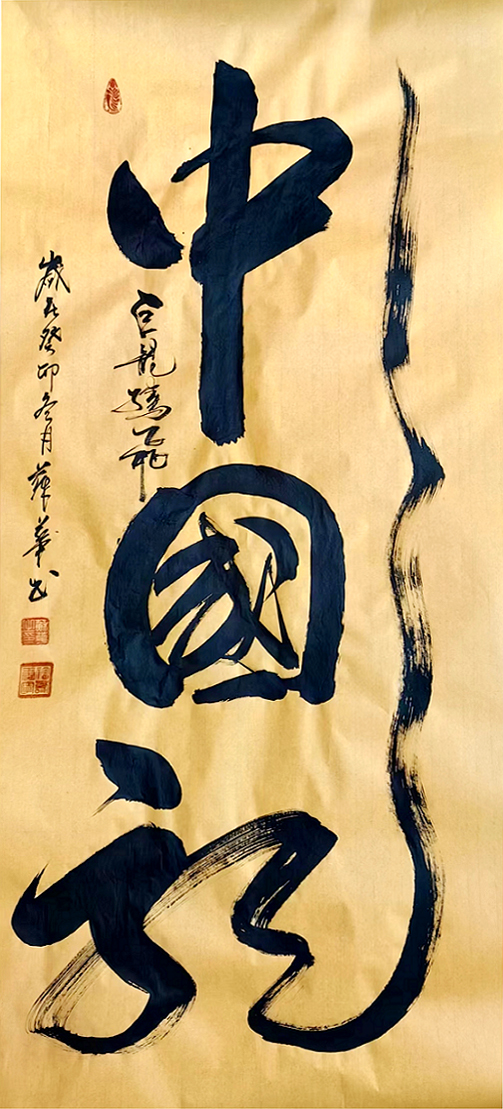 中國龍
巨龍騰飛
歲在癸卯冬月薛華书